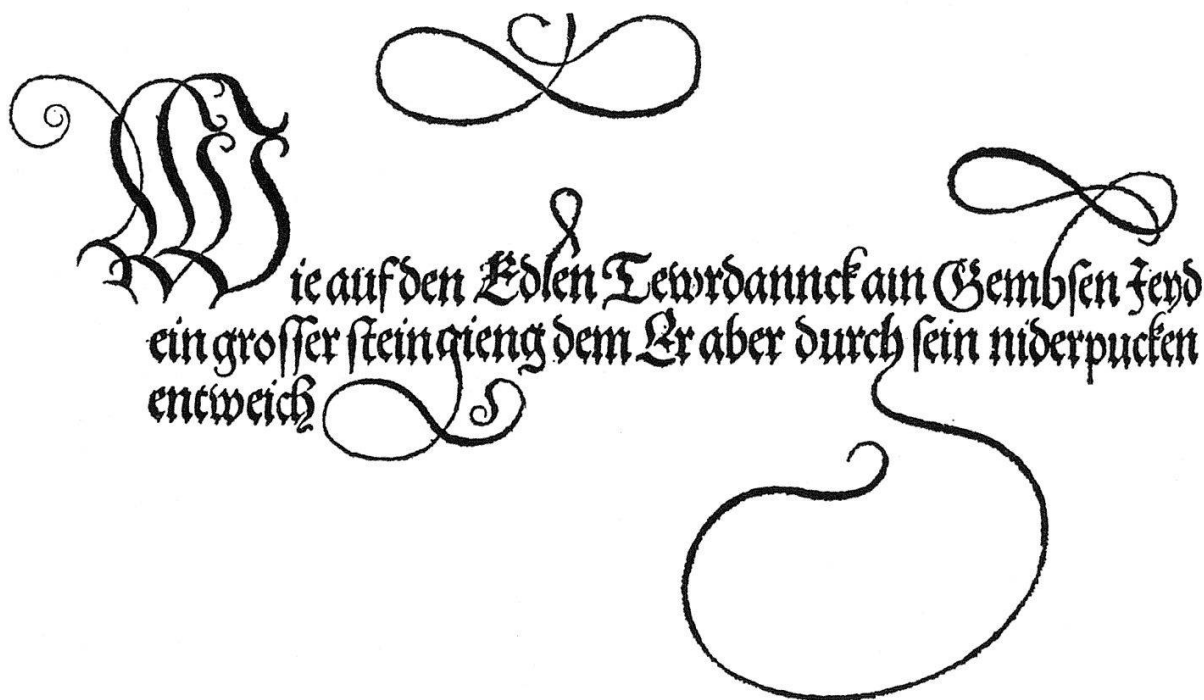 Wie auf den Edlen Tewrdannck am Gembsen Jeyd
ein grosser stein gieng dem Er aber durch sein niderpucken
entweich